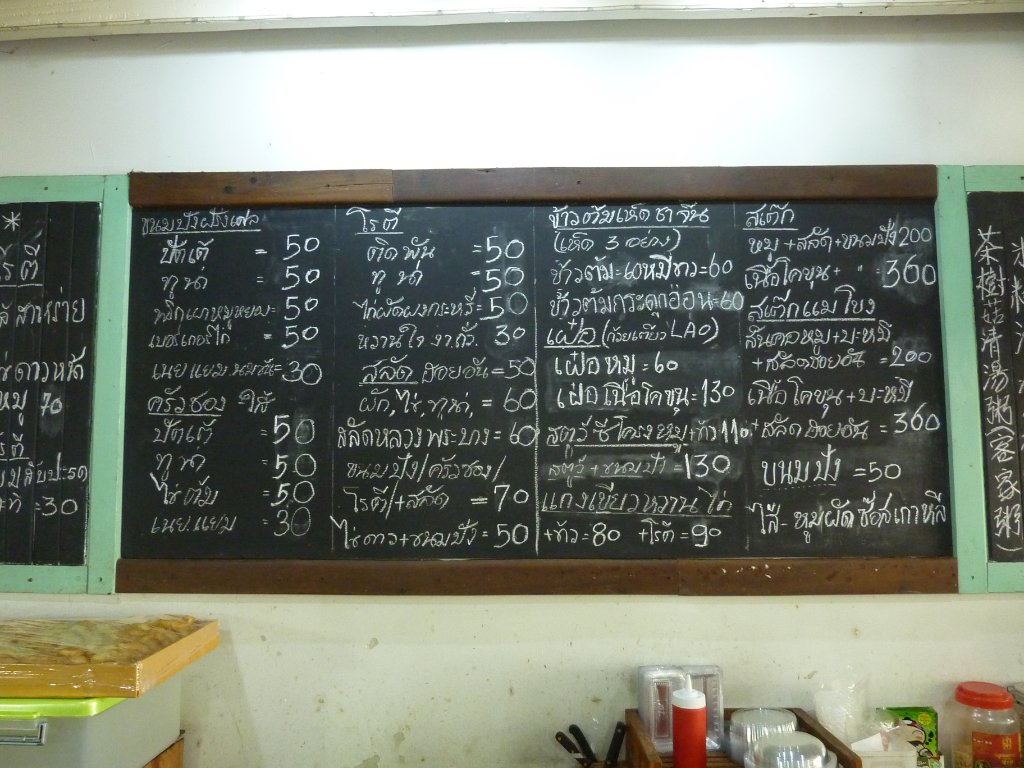 *
โรตี
สาหร่าย
ไข่ดาวหนัง
หมู 70
=50
=30
ขนมปังฝรั่งเศส
ปัตเต้ = 50
ทูน่า = 50
พริกเผาหมูหยอง = 50
เบอร์เกอร์ไก่ = 50
เนย แยม นมข้น = 30
ครัวซอง ไส้
ปัตเต้ = 50
ทูน่า = 50
ไข่ต้ม = 50
เนย.แยม = 30
โรตี
คิดพัน = 50
ทูน่า = 50
ไก่ผัดผงกะหรี่ = 50
หวานใจ งา.ถั่ว. 30
สลัด ฮอยอัน = 50
ผัก, ไข่, ทูน่า, = 60
สลัดหลวงพระบาง = 60
ขนมปัง/ครัวซอง/
โรตี/+สลัด = 70
ไข่ดาว+ขนมปัง = 50
ข้าวต้มเห็ดชาจีน
(เห็ด 3 อย่าง)
ข้าวต้ม = 60
ข้าวต้มกระดูกอ่อน = 60
เฝอ (ก๋วยเตี๋ยว LAO)
เฝอ หมู = 60
เฝอ เนื้อโคขุน = 130
สตูว์ ซี่โครงหมู+ข้าว 110
สตูว์ + ขนมปัง = 130
แกงเขียวหวาน ไก่
+ข้าว = 80 +โรตี = 90
สเต๊ก
หมู + สลัด + ขนมปัง 200
เนื้อโคขุน + " = 360
สเต๊กแมโขง
สันคอหมู+บะหมี่
+สลัดฮอยอัน = 200
เนื้อโคขุน+บะหมี่
+สลัดฮอยอัน = 360
ขนมปัง = 50
ไส้ = หมูผัดซ๊อสเกาหลี
茶樹菇清湯粥(客家粥)